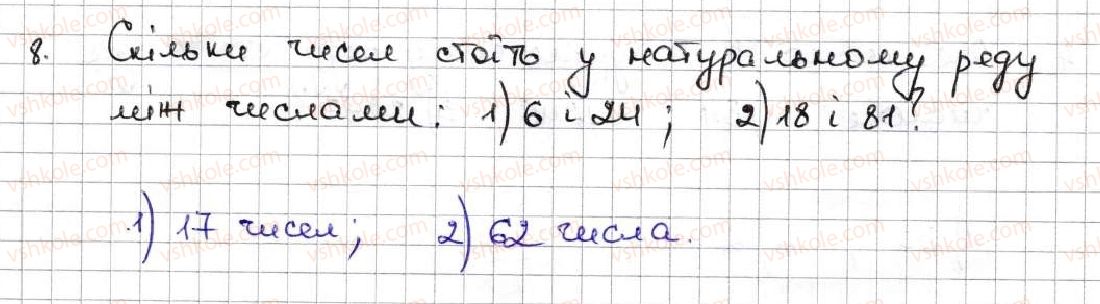 8. Скільки чисел стоїть у натуральному ряду
між числами: 1) 6 і 24; 2) 18 і 81?
1) 17 чисел; 2) 62 числа.